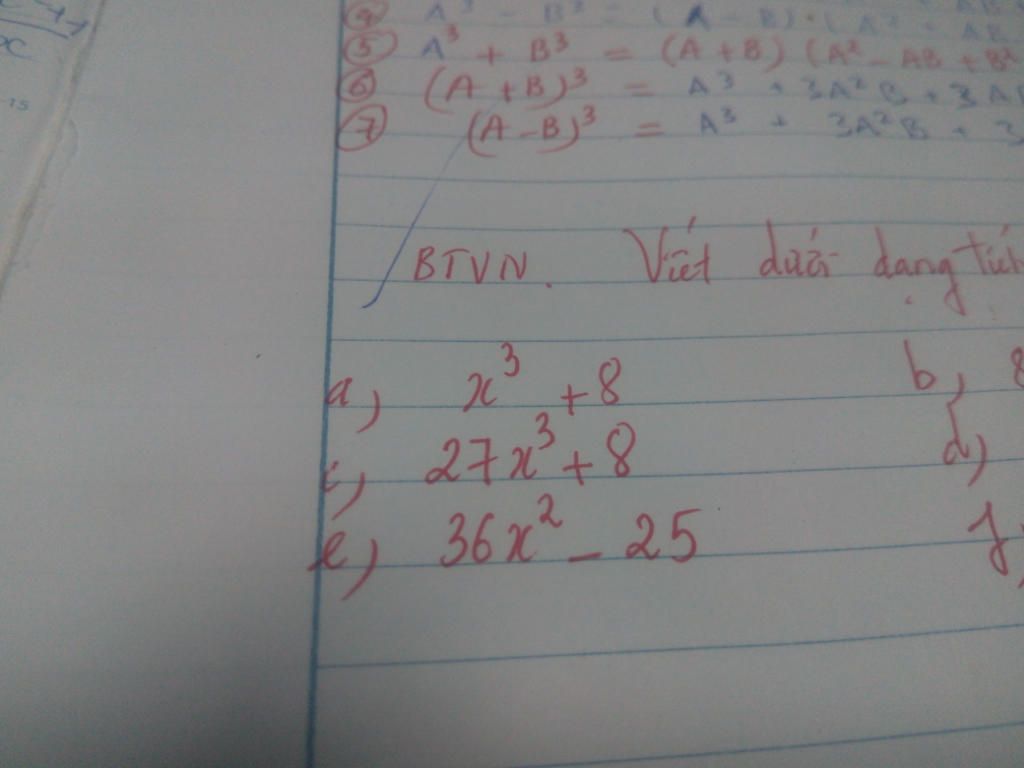 ④ A³ - B³ = (A - B).(A² + AB
⑤ A³ + B³ = (A + B) (A² - AB + B²
⑥ (A + B)³ = A³ + 3A²B + 3AB
⑦ (A - B)³ = A³ + 3A²B + 3
BTVN. Viết dưới dạng tích
a, x³ + 8 b, 8
c, 27x³ + 8 d)
e) 36x² - 25 f,